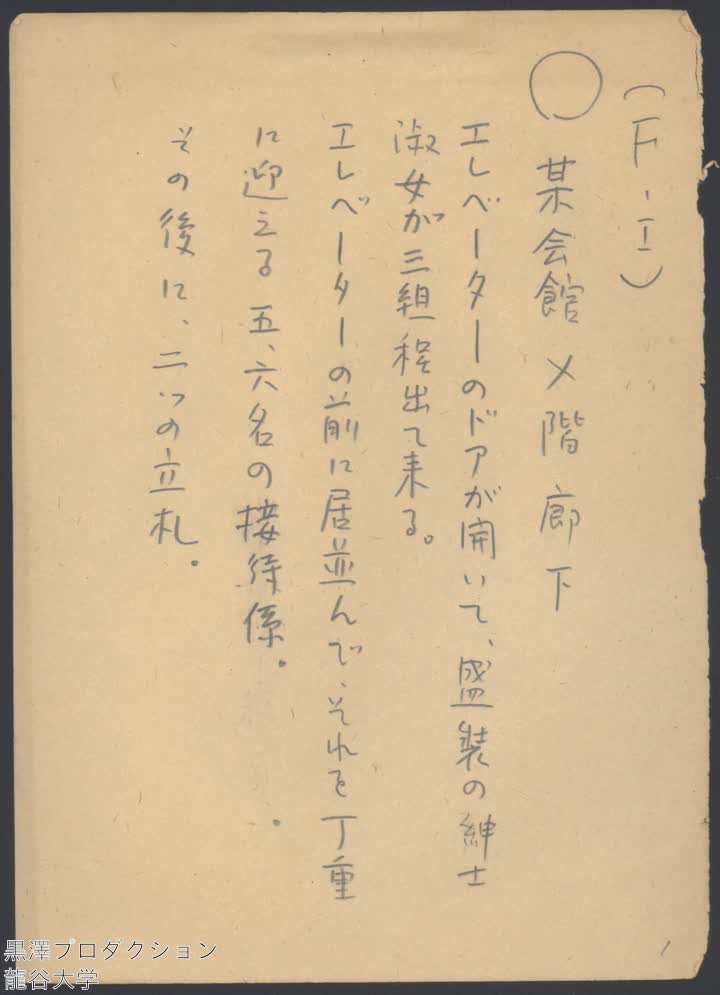 (F・I)
○ 某会館 メ階 廊下
エレベーターのドアが開いて、盛装の紳士
淑女が三組程出て来る。
エレベーターの前に居並んで、それを丁重
に迎える五、六名の接待係。
その後に、二つの立札。
1
黒澤プロダクション
龍谷大学